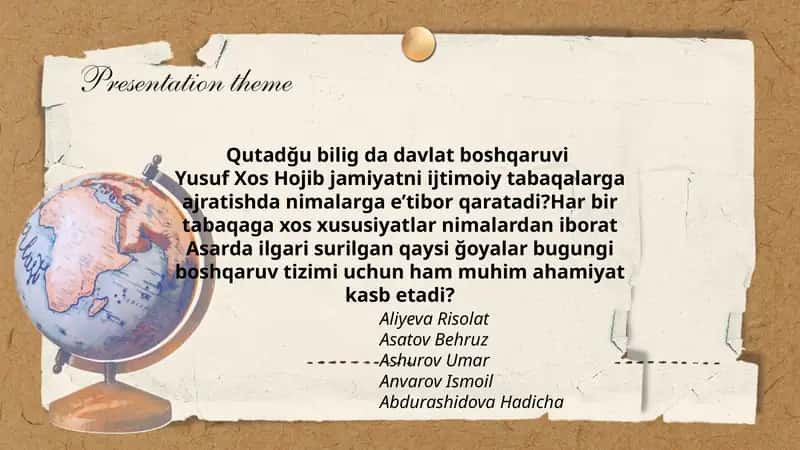 Presentation theme
Qutadğu bilig da davlat boshqaruvi
Yusuf Xos Hojib jamiyatni ijtimoiy tabaqalarga
ajratishda nimalarga e’tibor qaratadi?Har bir
tabaqaga xos xususiyatlar nimalardan iborat
Asarda ilgari surilgan qaysi ğoyalar bugungi
boshqaruv tizimi uchun ham muhim ahamiyat
kasb etadi?
Aliyeva Risolat
Asatov Behruz
Ashurov Umar
Anvarov Ismoil
Abdurashidova Hadicha